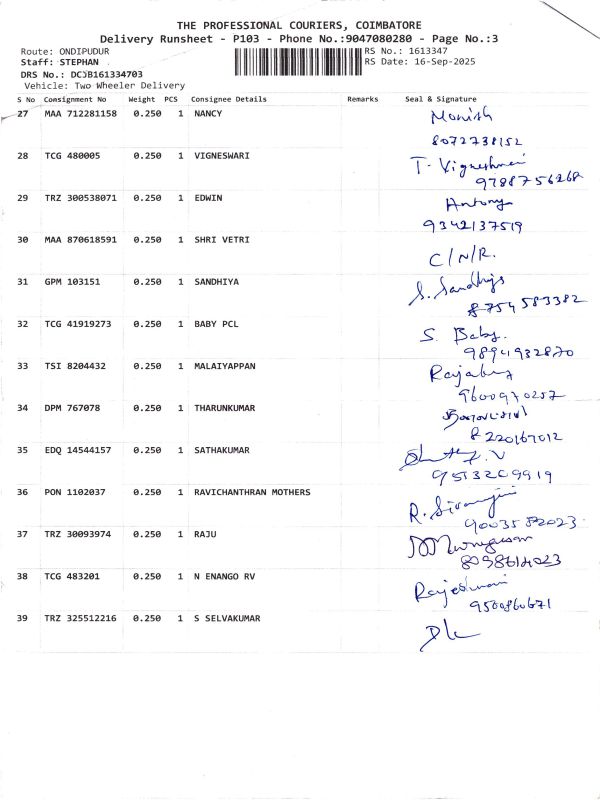 THE PROFESSIONAL COURIERS, COIMBATORE
Delivery Runsheet - P103 - Phone No.:9047080280 - Page No.:3
Route: ONDIPUDUR RS No.: 1613347
Staff: STEPHAN RS Date: 16-Sep-2025
DRS No.: DCJB161334703
Vehicle: Two Wheeler Delivery
S No Consignment No Weight PCS Consignee Details Remarks Seal & Signature
27 MAA 712281158 0.250 1 NANCY Monish
8072738152
28 TCG 480005 0.250 1 VIGNESWARI T. Vigneshwari
9788756268
29 TRZ 300538071 0.250 1 EDWIN Antony
9342137519
30 MAA 870618591 0.250 1 SHRI VETRI C/N/R.
31 GPM 103151 0.250 1 SANDHIYA S. Sandhiya
8754583382
32 TCG 41919273 0.250 1 BABY PCL S. Baby.
9894932870
33 TSI 8204432 0.250 1 MALAIYAPPAN
9600970257
34 DPM 767078 0.250 1 THARUNKUMAR
8220167012
35 EDQ 14544157 0.250 1 SATHAKUMAR
36 PON 1102037 0.250 1 RAVICHANTHRAN MOTHERS R. Sivaranjini
9003582023
37 TRZ 30093974 0.250 1 RAJU Murugesan
38 TCG 483201 0.250 1 N ENANGO RV Rajeshwari
9500860671
39 TRZ 325512216 0.250 1 S SELVAKUMAR